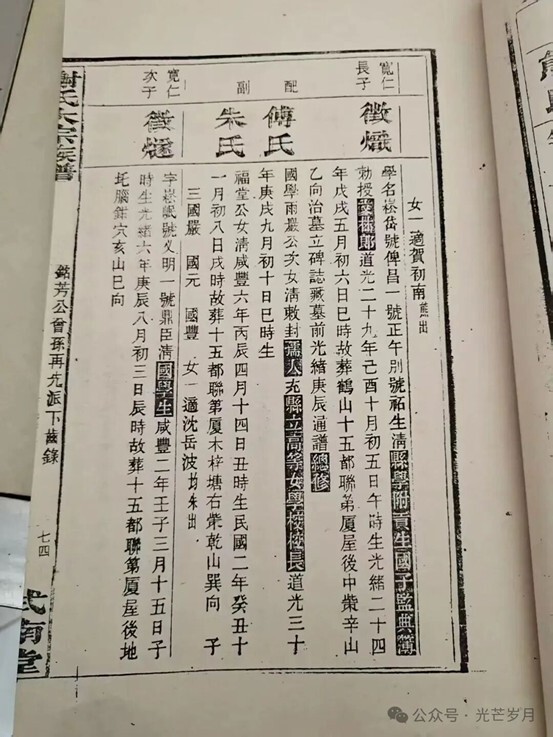 女一適賀初南熊出
寬仁長子
徵熾
學名崧岱號俾昌一號正午別號祐生清縣學附貢生國子監典簿
勅授登仕郎道光二十九年己酉十月初五日午時生光緒二十四
年戊戌五月初六日巳時故葬鶴山十五都聯第厦屋後中柴辛山
乙向治墓立碑誌藏墓前光緒庚辰通譜總修
配
傅氏
國學雨嚴公次女清敕封孺人充縣立高等女學校校長道光三十
年庚戌九月初十日巳時生
副
朱氏
福堂公女清咸豐六年丙辰四月十四日丑時生民國二年癸丑十
一月初八日戌時故葬十五都聯第厦木梓塘右柴乾山巽向 子
三國嚴 國元 國豐 女一適沈岳波均朱出
寬仁次子
徵燧
字崧嶽號乂明一號鼎臣清國學生咸豐二年壬子三月十五日子
時生光緒六年庚辰八月初三日辰時故葬十五都聯第厦屋後地
坨腦鉗穴亥山巳向
謝氏大宗族譜
公會孫再先派下齒錄
七四
式南堂
公众号·光芒岁月